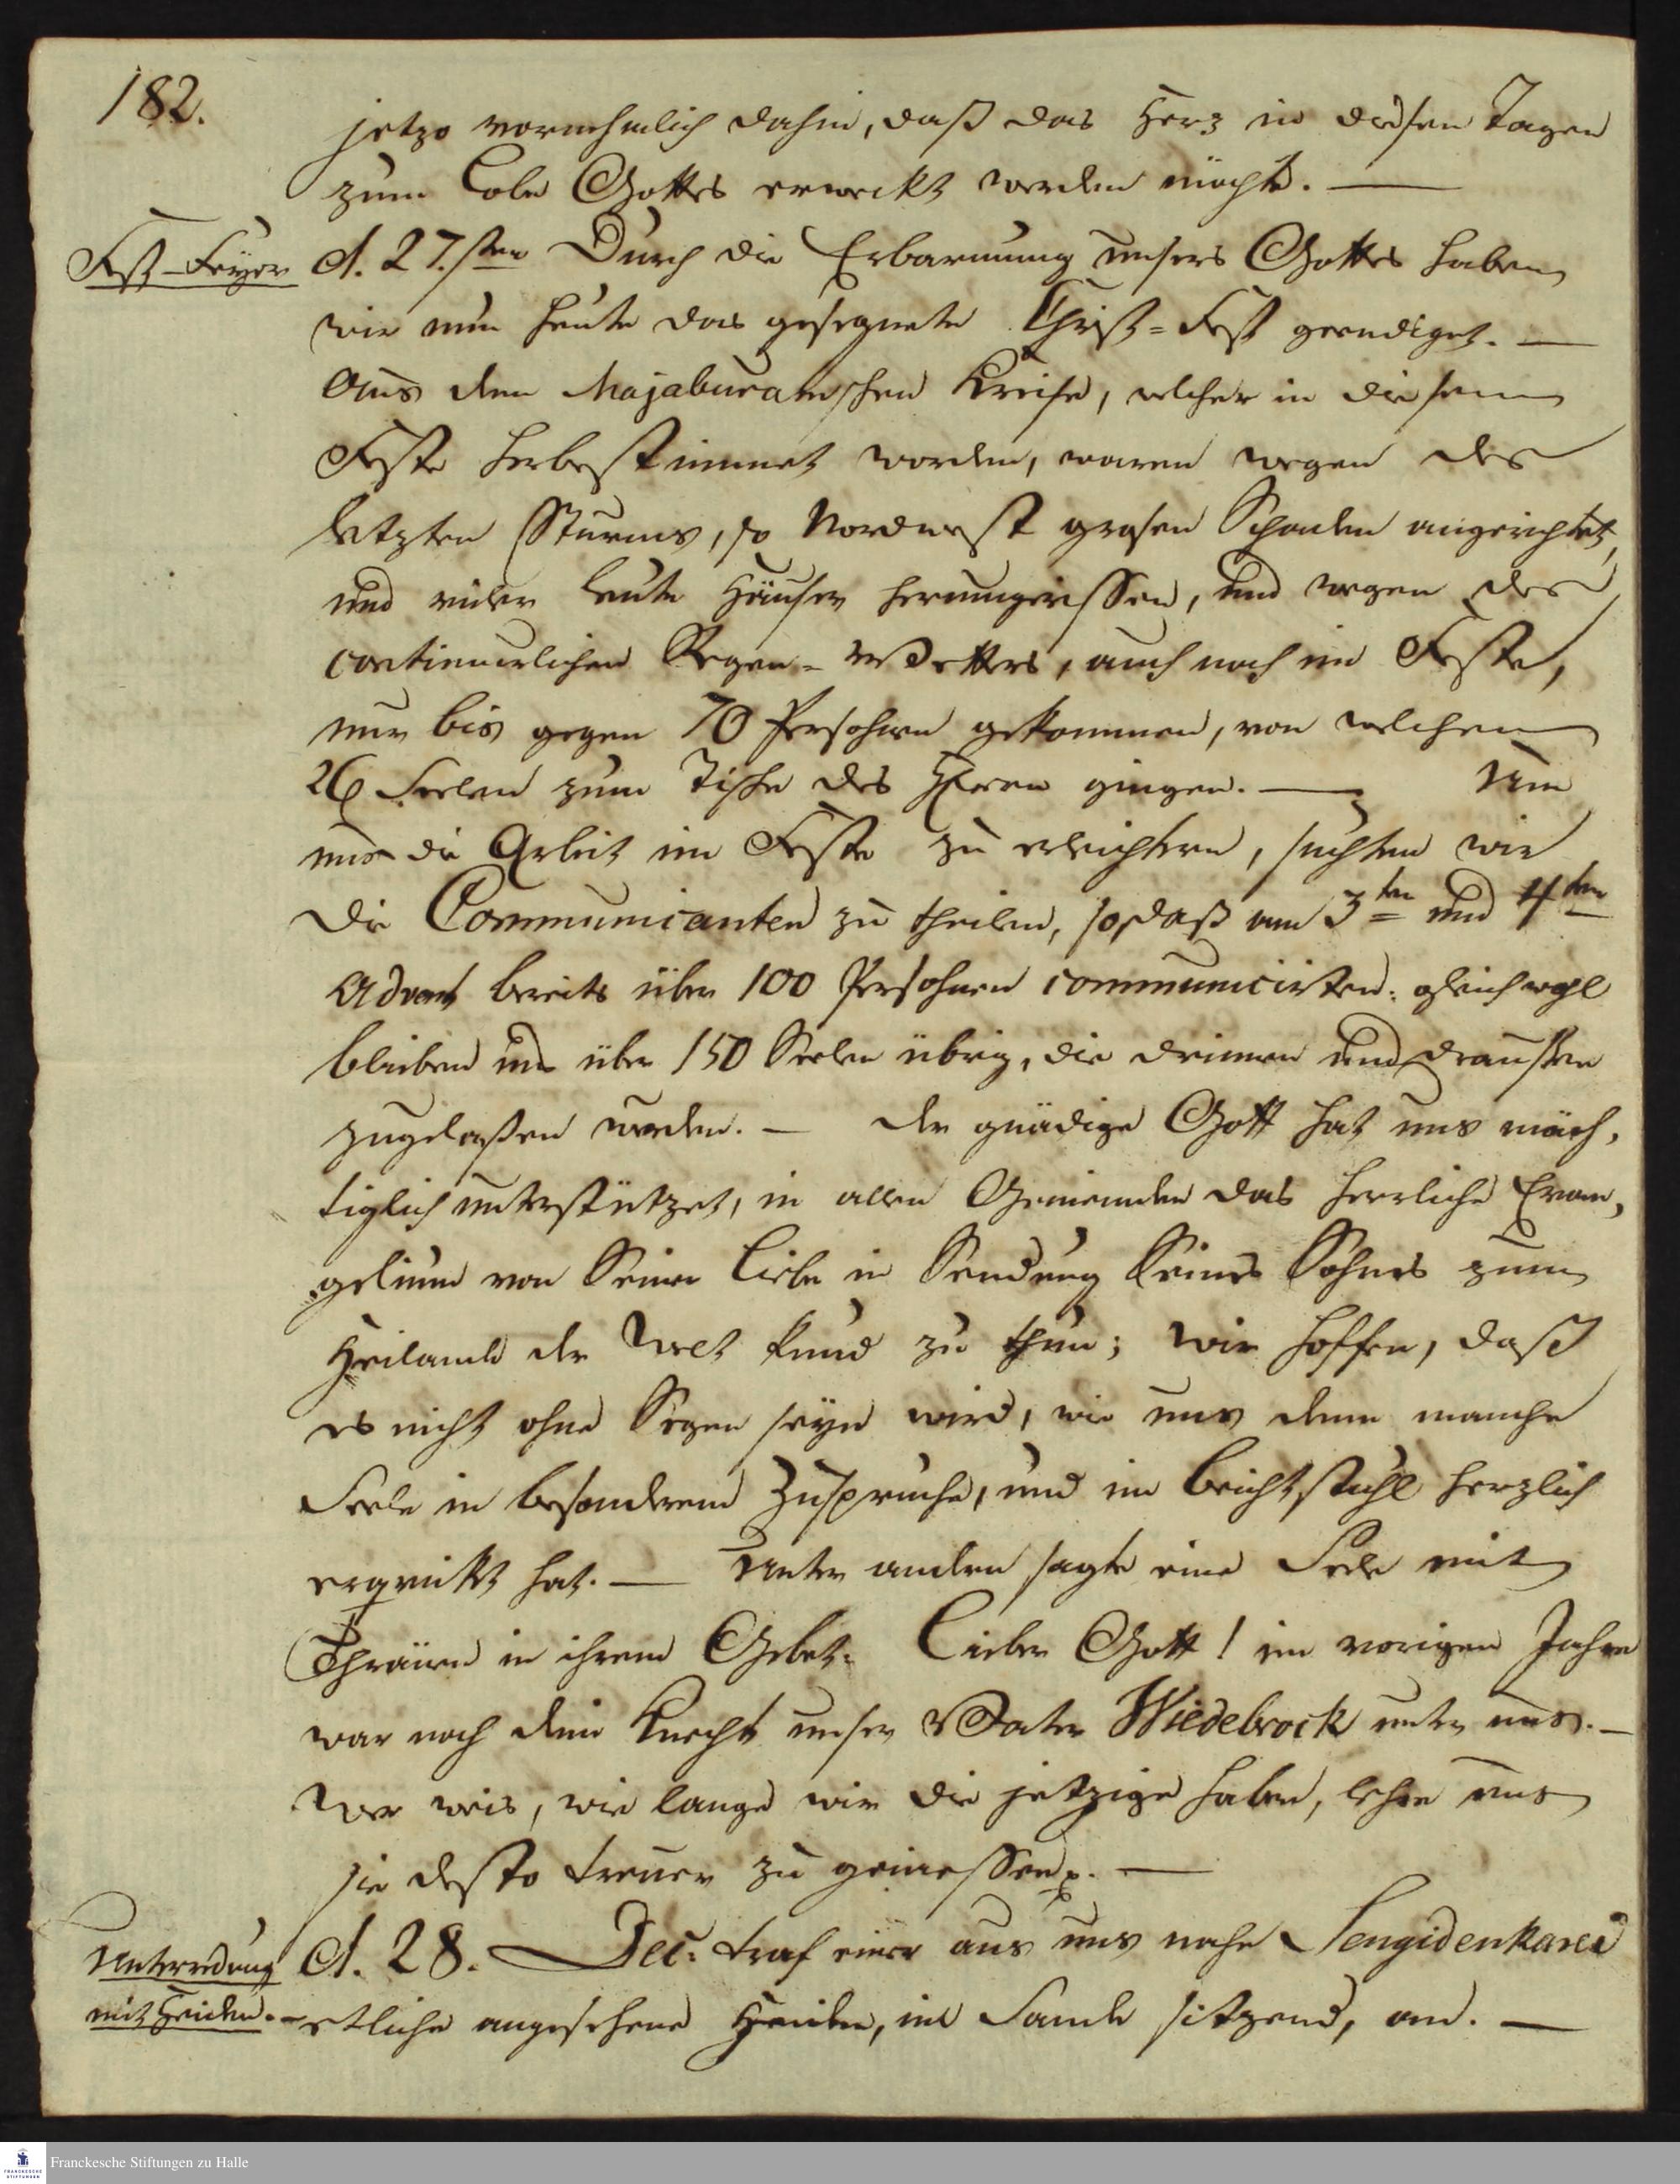 182.
jetzo vornehmlich dahin, daß das Herz in diesen Tagen
zum Lobe Gottes erweckt werden möchte. —
Fest-Feyer
d. 27.sten Durch die Erbarmung unsers Gottes haben
wir nun heute das gesegnete Christ-Fest geendiget. —
Aus dem Majaburamschen Kreise, welcher in diesem
Feste herbestimmet worden, waren wegen des
letzten Sturms, so Nordwest grosen Schaden angerichtet,
und vieler Leute Häuser herumgerissen, und wegen des
continuirlichen Regen-Wetters, auch noch im Feste,
nur bis gegen 70 Persohnen gekommen, von welchen
26 Seelen zum Tische des HErrn gingen. — Um
uns die Arbeit im Feste zu erleichtern, suchten wir
die Communicanten zu theilen, so daß am 3ten und 4ten
Advent bereits über 100 Persohnen communicirten: gleichwohl
blieben uns über 150 Seelen übrig, die drinnen und draussen
zugelaßen wurden. — Der gnädige Gott hat uns mäch-
tiglich unterstützet, in allen Gemeinden das herrliche Evan-
gelium von Seiner Liebe in Sendung Seines Sohnes zum
Heilande der Welt kund zu thun; wir hoffen, daß
es nicht ohne Segen seyn wird, wie uns denn manche
Seele in besonderem Zuspruche, und im Beichtstuhl herzlich
erquickt hat. — Unter andern sagte eine Seele mit
Thränen in ihrem Gebet: Lieber Gott! im vorigen Jahre
war noch dein Knecht unser Vater Wiedebrock unter uns. —
Wer weis, wie lange wir die jetzige haben, lehre uns
sie desto treuer zu geniessen p. —
Unterredung
mit Heiden. —
d. 28. Dec: traf einer aus uns nahe Sengidenkarei
etliche angesehene Heiden, im Sande sitzend, an. —
Franckesche Stiftungen zu Halle
FRANCKESCHE
STIFTUNGEN